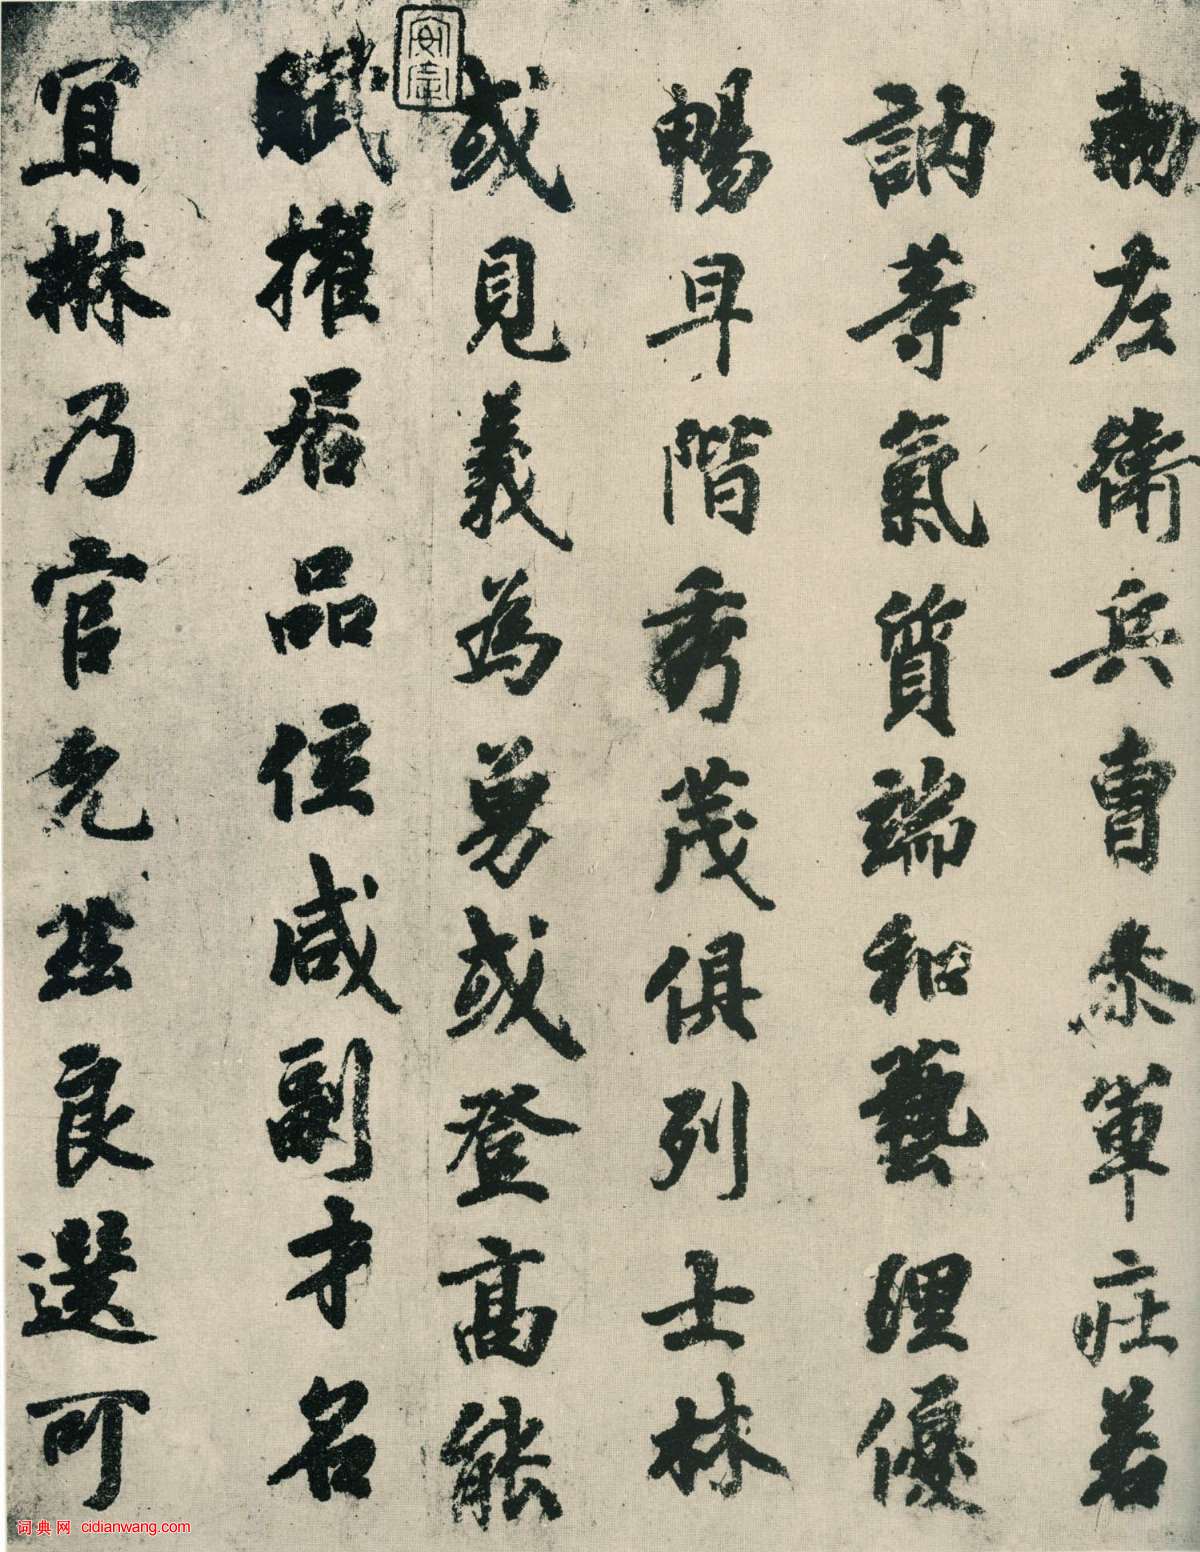 勅左衛兵曹叅軍莊若
訥等氣質端和藝理優
暢早階秀茂俱列士林
或見義為勇或登高能
賦擢居品位咸副才名
宜楙乃官允茲良選可
词典网 cidianwang.com